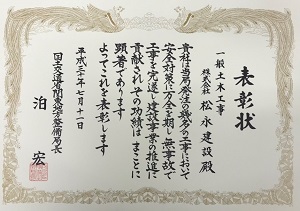 表彰状
一般土木工事
株式会社 松永建設 殿
貴社は当局発注の幾多の工事において
安全対策に万全を期し無事故で
工事を完遂し建設事業の推進に
貢献されその功績はまことに
顕著であります
よってこれを表彰します
平成三十年七月十一日
国土交通省関東地方整備局長
泊 宏